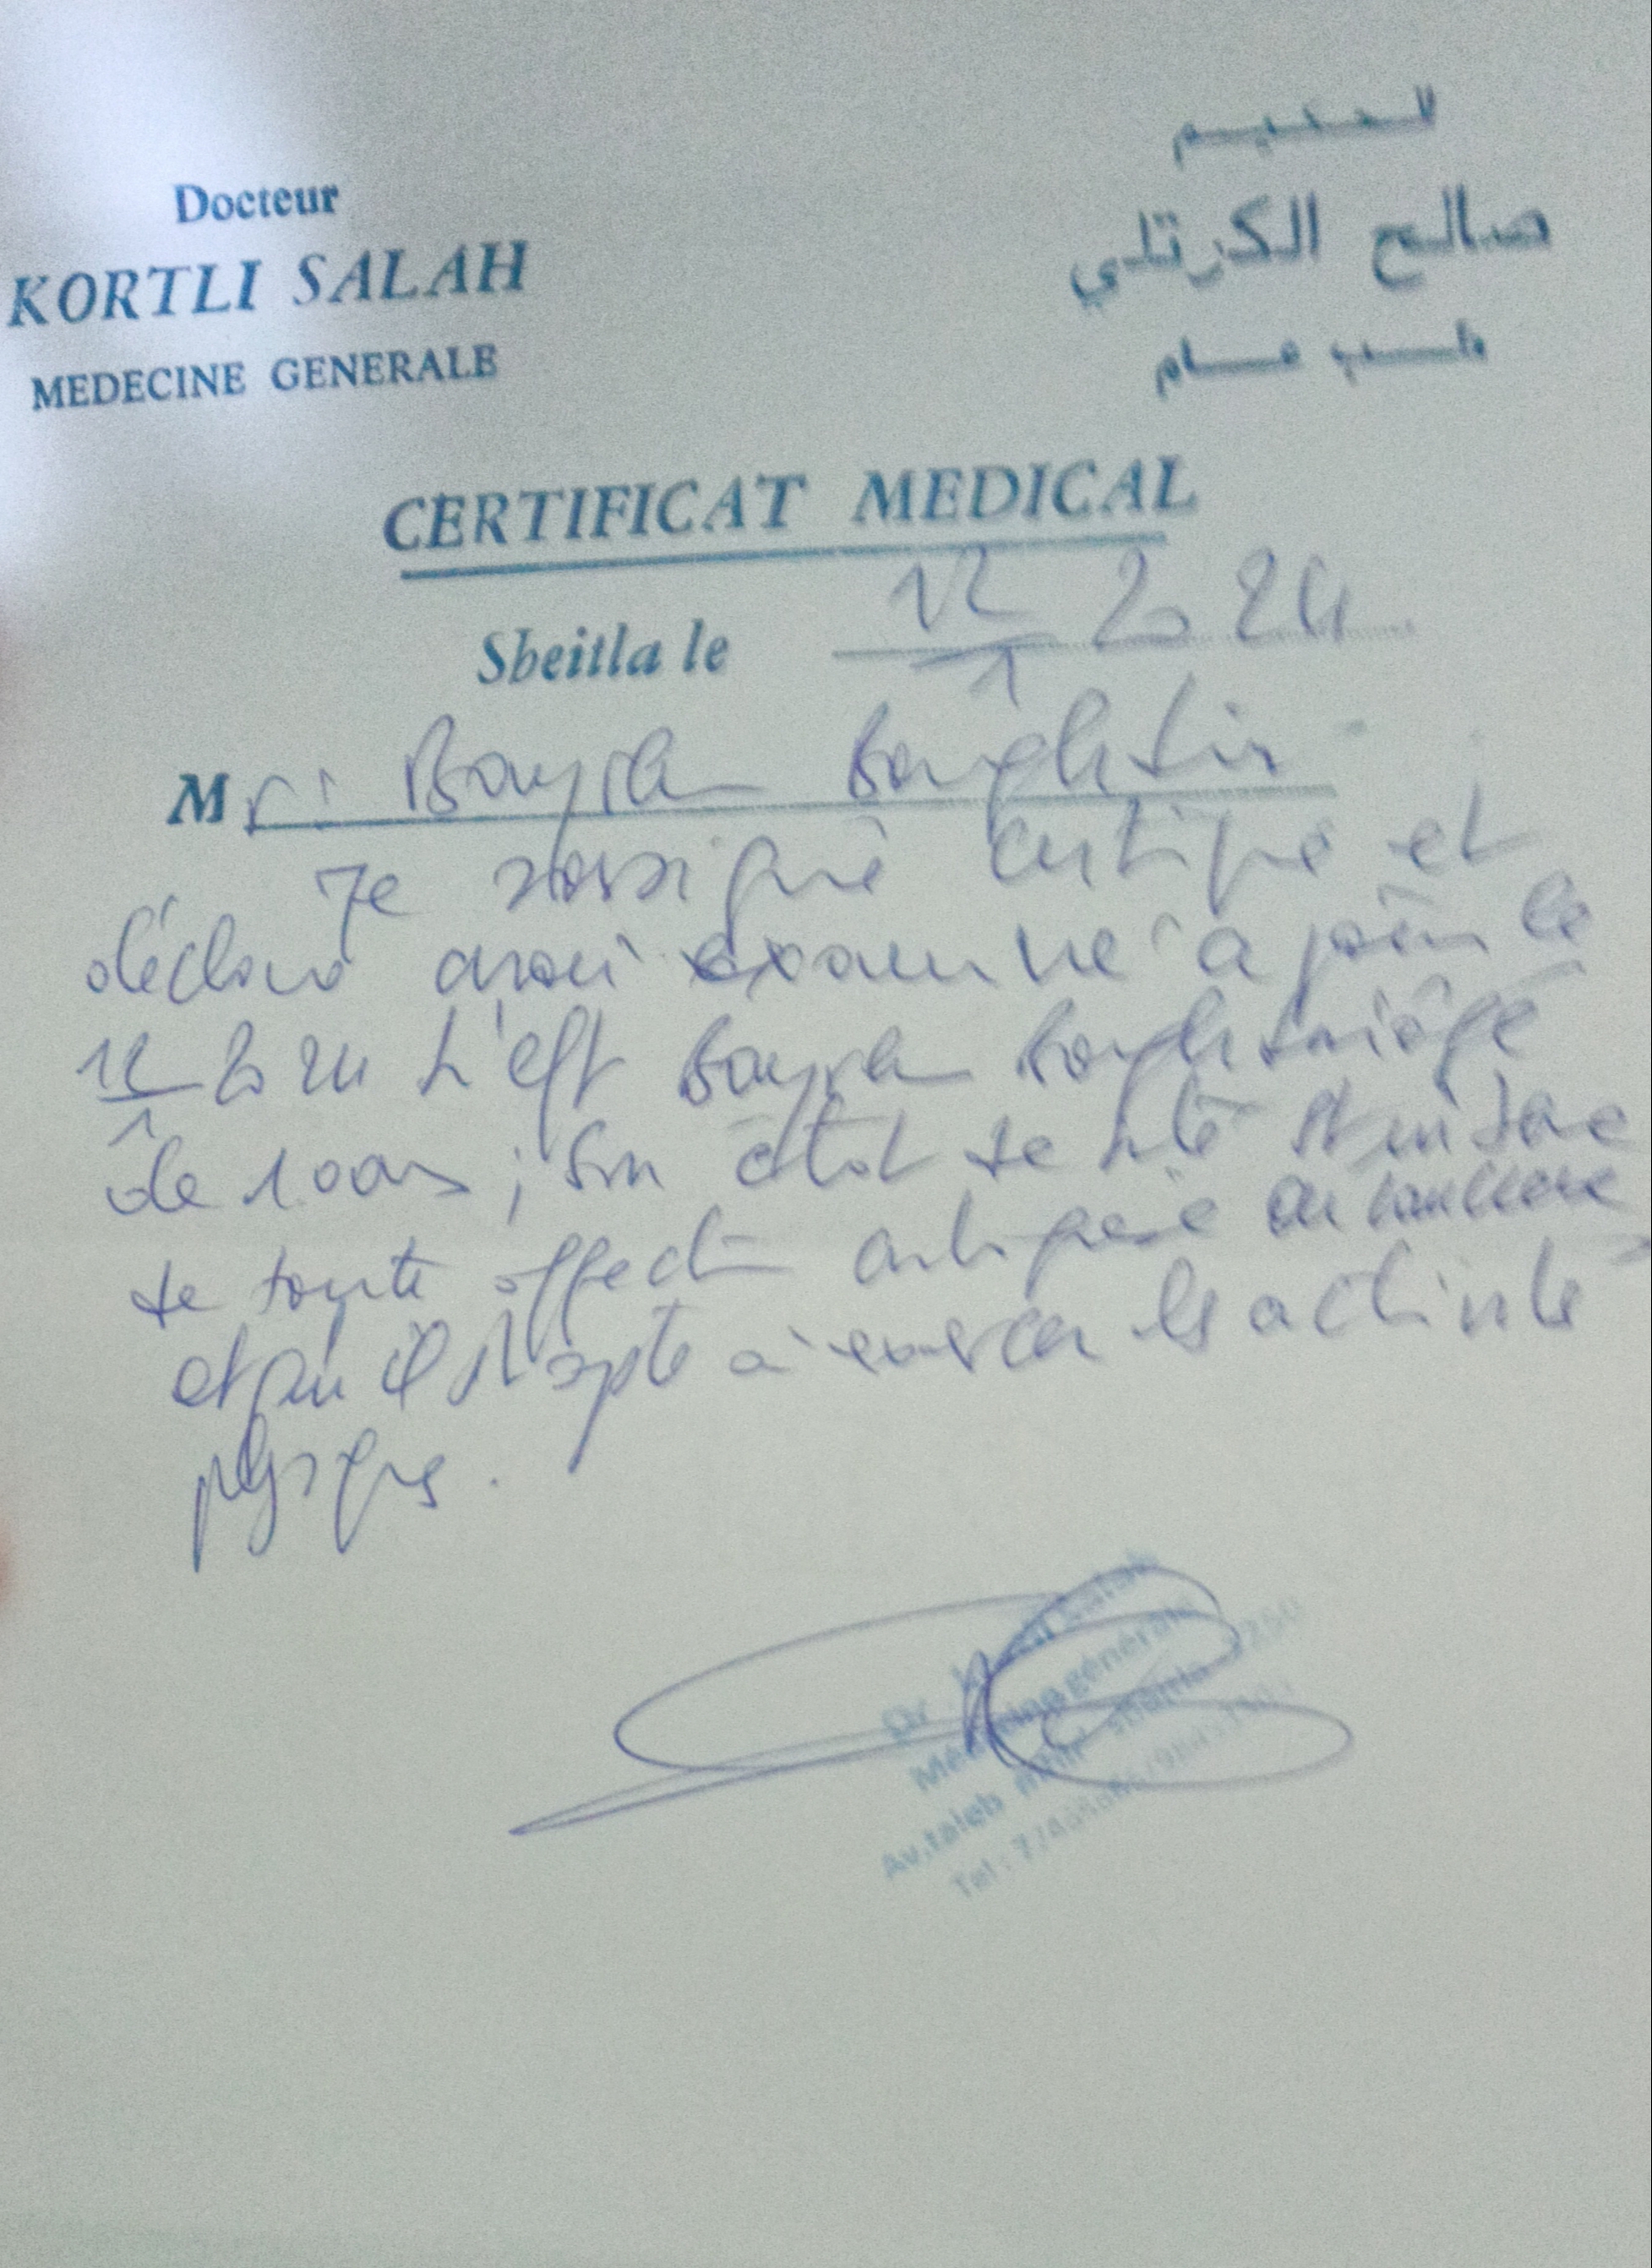 Docteur
KORTLI SALAH
MEDECINE GENERALE
الحكيم
صالح الكرتلي
طب عام
CERTIFICAT MEDICAL
Sbeitla le 12/1 2024
M
Je soussigné certifie et
déclare avoir examiné à jour le
12/1 2024 L'eft
de 10 ans ; Son état de santé est indemne
de toute affection contagieuse ou
et qu'il est apte à exercer les activités
physiques.
Dr Salah
Médecine générale
Av. taleb Sbeitla
Tel :